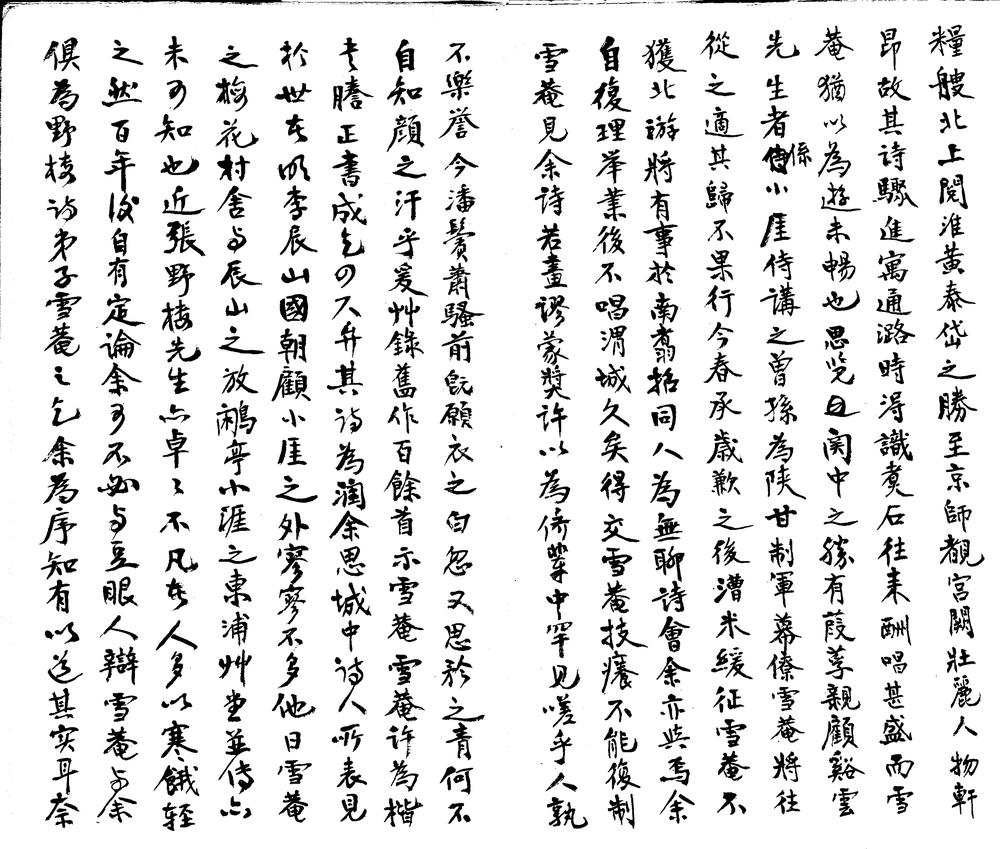 糧艘北上閱淮黃泰岱之勝至京師覩宮闕壯麗人物軒
昂故其詩驟進寓通潞時得識煑石往来酬唱甚盛而雪
菴猶以為遊未暢也思覽關中之勝有葭莩親顧谿雲
先生者係小厓侍講之曾孫為陝甘制軍幕僚雪菴將往
從之適其歸不果行今春承歲歉之後漕米緩征雪菴不
獲北游將有事於南翥招同人為無聊詩會余亦與焉余
自復理举業後不唱渭城久矣得交雪菴技癢不能復制
雪菴見余詩若畫謬蒙奬許以為儕輩中罕見嗟乎人孰
不樂譽今潘鬢蕭騷前既願衣之白忽又思衿之青何不
自知顏之汗乎爰艸錄舊作百餘首示雪菴雪菴许為楷
書謄正書成乞の又弁其诗為潤余思城中诗人所表見
於世在明李辰山國朝顧小厓之外寥寥不多他日雪菴
之梅花村舍与辰山之放鷴亭小涯之東浦艸堂並傳亦
未可知也近張野樓先生亦卓々不凡在人多以寒餓轻
之然百年後自有定論余可不必与豆眼人辯雪菴与余
俱為野樓诗弟子雪菴之乞余為序知有以道其实耳奈